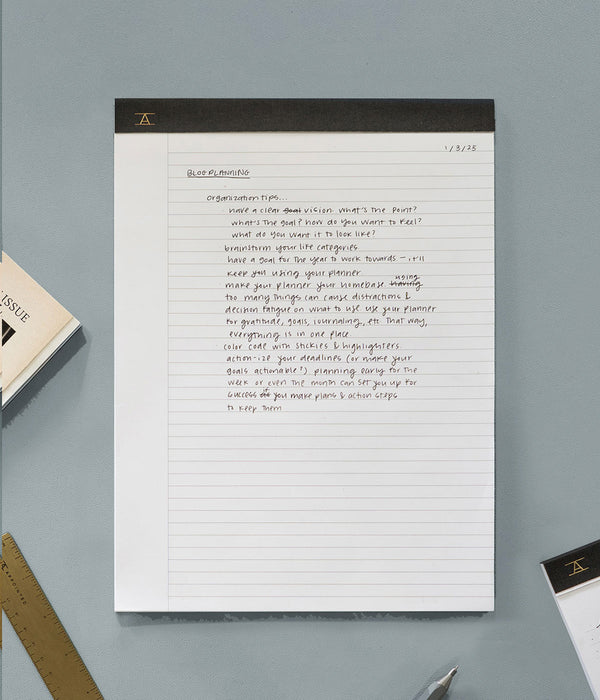 A
1/3/25
BLOG PLANNING
organization tips...
have a clear goal vision. what's the point?
what's the goal? how do you want to feel?
what do you want it to look like?
brainstorm your life categories
have a goal for the year to work towards - it'll
keep you using your planner
make your planner your homebase. having using
too many things can cause distractions &
decision fatigue on what to use. use your planner
for gratitude, goals, journaling, etc. That way,
everything is in one place
color code with stickies & highlighters
action-ize your deadlines (or make your
goals actionable!) planning early for the
week or even the month can set you up for
success if you make plans & action steps
to keep them
ISSUE
APPOINTED
A